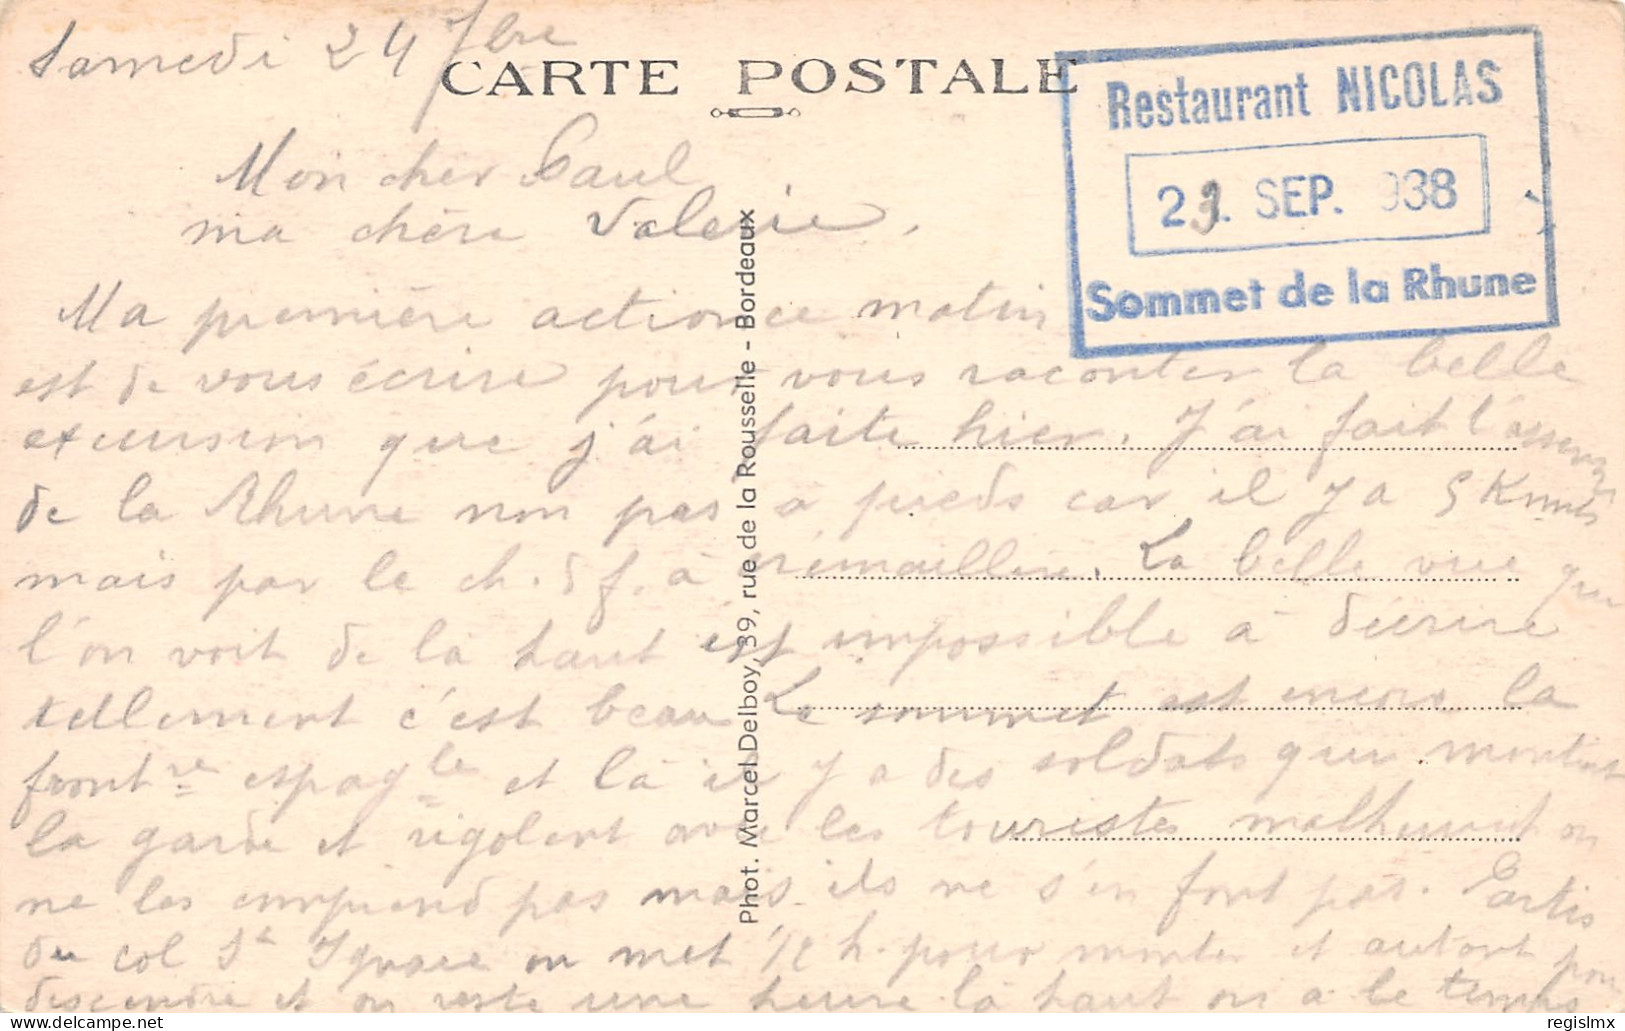 Samedi 24 7bre
CARTE POSTALE
Restaurant NICOLAS
23. SEP. 938
Sommet de la Rhune
Mon cher Paul
ma chère Valerie,
Ma première action ce matin
est de vous écrire pour vous raconter la belle
excursion que j'ai faite hier. J'ai fait l'
de la Rhune non pas a pieds car il y a 5 Kmts
mais par le ch. d f. à crémaillere. La belle vue que
l'on voit de la haut est impossible à décrire
tellement c'est beau Le sommet est encore la
frontre espagle et là il y a des soldats qui montent
la garde et rigolent avec les touristes malheureust on
ne les comprend pas mais ils ne s'en font pas. Partis
du col St Ignace on met 1/2 h. pour monter et autant pour
descendre et on reste une heure la haut on a le temps
Phot. Marcel Delboy, 39, rue de la Rousselle - Bordeaux
regislmx
www.delcampe.net